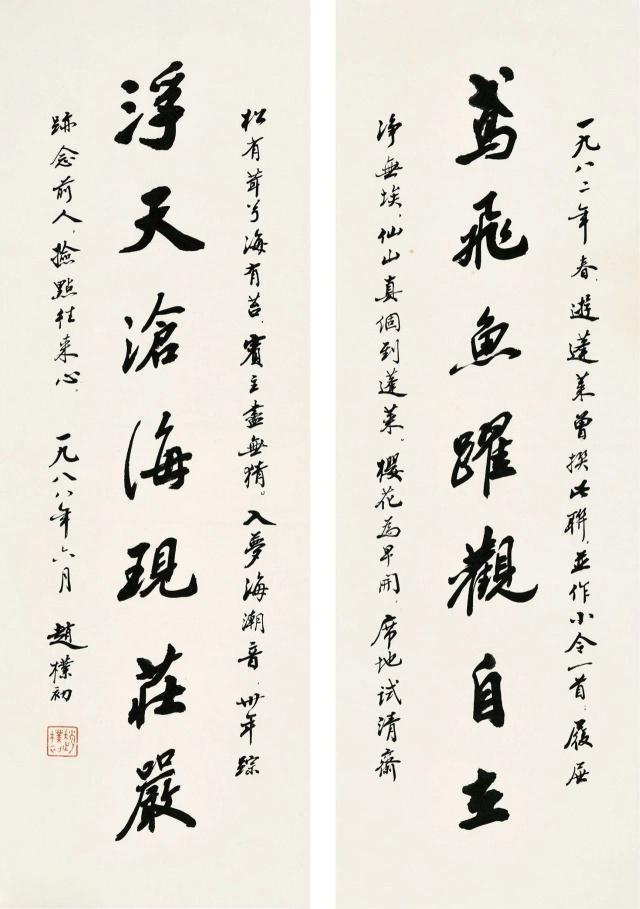 一九八二年春，遊蓬萊曾撰此聯，並作小令一首：履
鳶飛魚躍觀自在
淨無埃，仙山真個到蓬萊。櫻花為早開，席地試清齋
松有茸兮海有苔，賓主盡無猜。入夢海潮音，卅年踪
浮天滄海現莊嚴
跡念前人，撿點往來心。 一九八八年六月 趙樸初